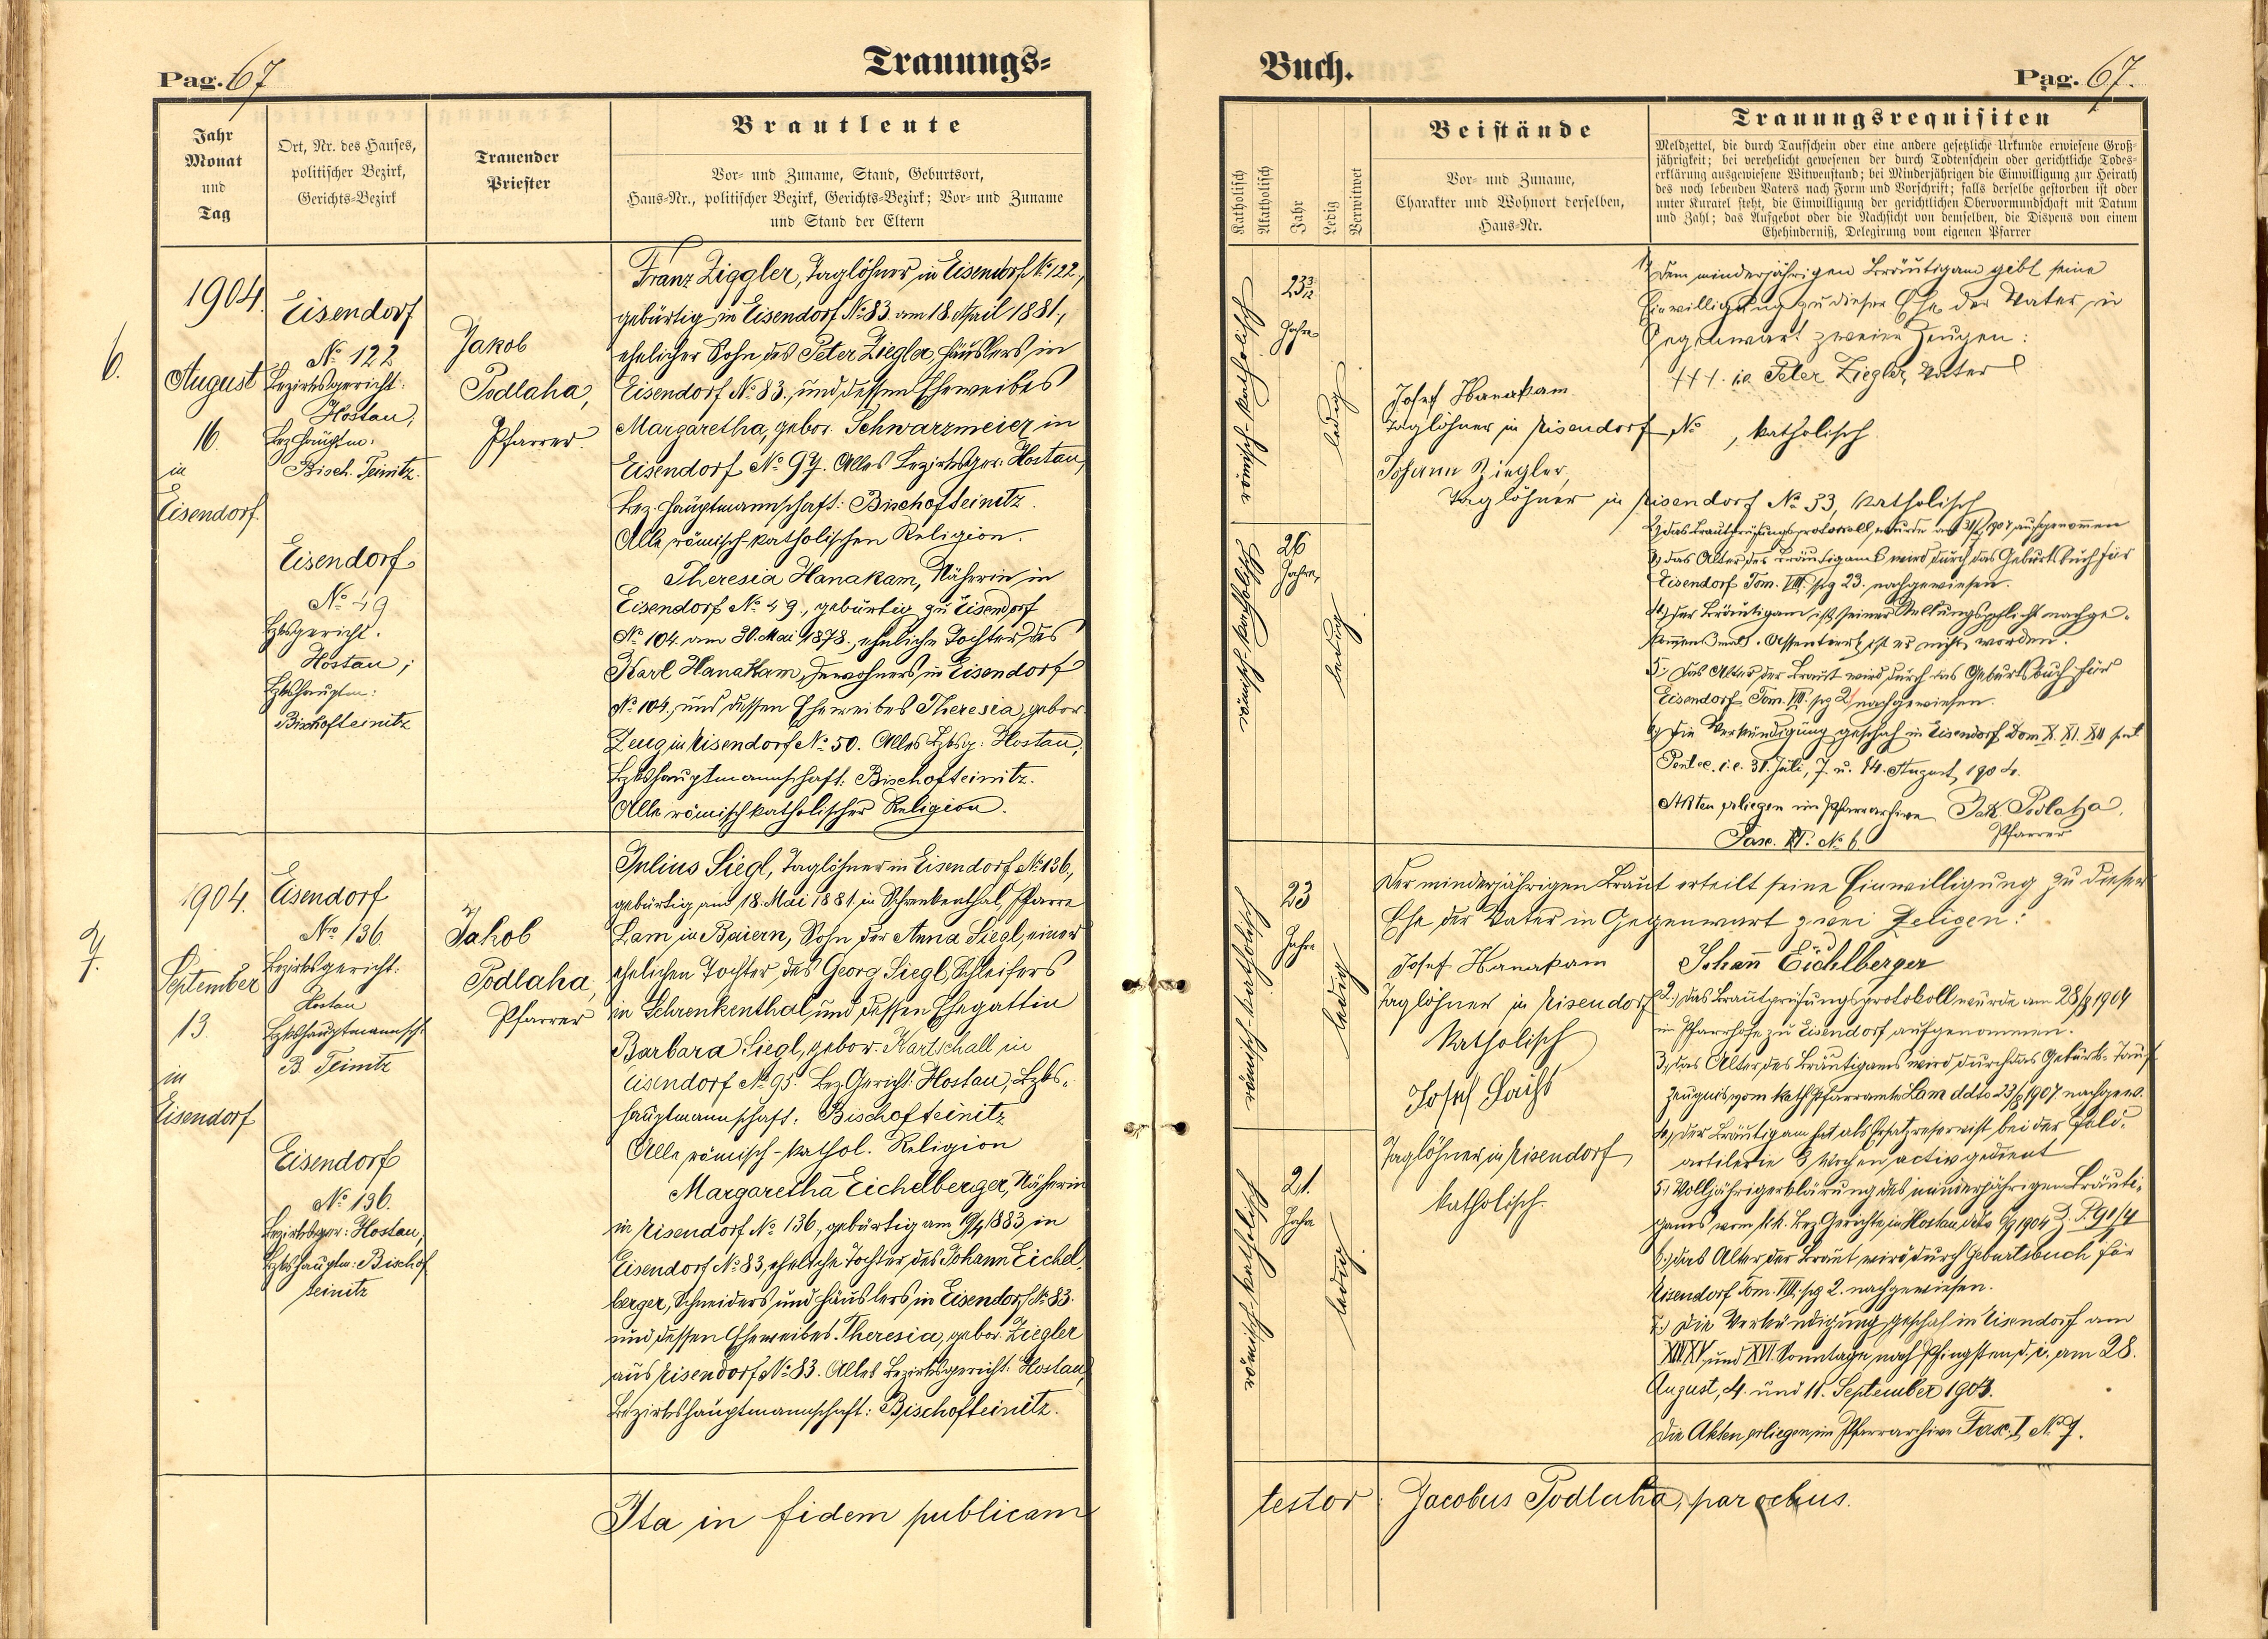 Pag. 67
Trauungs=
Jahr
Monat
und
Tag
Ort, Nr. des Hauses,
politischer Bezirk,
Gerichts-Bezirk
Trauender
Priester
Brautleute
Vor- und Zuname, Stand, Geburtsort,
Haus-Nr., politischer Bezirk, Gerichts-Bezirk; Vor- und Zuname
und Stand der Eltern
6.
1904.
August
16.
in
Eisendorf.
Eisendorf
No 122
Bezirksgericht:
Hostau,
Bez. Hauptm:
Bisch. Teinitz.
Eisendorf
No 49
Bzksgericht.
Hostau;
Bzkshauptm:
Bischofteinitz
Jakob
Podlaha,
Pfarrer.
Franz Ziggler, Taglöhner in Eisendorf No 122,
gebürtig in Eisendorf No 83. am 18. April 1881.,
ehelicher Sohn des Peter Ziegler, Häuslers in
Eisendorf No 83., und dessen Eheweibes
Margaretha, gebor. Schwarzmeier in
Eisendorf No 97. Alles Bezirksger: Hostau,
Bez. Hauptmannschaft: Bischofteinitz.
Alle römisch-katholischen Religion.
Theresia Hanakam, Näherin in
Eisendorf No 49., gebürtig zu Eisendorf
No 104. am 30. Mai 1878., eheliche Tochter des
Karl Hanakam, Inwohners in Eisendorf
No 104., und dessen Eheweibes Theresia, gebor.
Zeug in Eisendorf No 50. Alles Bzksg: Hostau,
Bzkshauptmannschaft: Bischofteinitz.
Alle römisch katholischer Religion.
7.
1904.
September
13.
in
Eisendorf
Eisendorf
No 136.
Bezirksgericht:
Hostau
Bzkshauptmannsch:
B. Teinitz
Eisendorf
No 136.
Bezirksger: Hostau,
Bzkshauptm: Bischof
teinitz
Jakob
Podlaha,
Pfarrer
Julius Siegl, Taglöhner in Eisendorf No 136.,
gebürtig am 18. Mai 1881. in Schrenkenthal, Pfarre
Lam in Baiern, Sohn der Anna Siegl, einer
ehelichen Tochter des Georg Siegl, Schleifers
in Schrenkenthal und dessen Ehegattin
Barbara Siegl, gebor. Kartschall in
Eisendorf No 95. Bez. Gericht: Hostau, Bzks-
hauptmannschaft: Bischofteinitz
Alle römisch-kathol. Religion
Margaretha Eichelberger, Näherin
in Eisendorf No 136., gebürtig am 19/4 1883 in
Eisendorf No 83, eheliche Tochter des Johann Eichel-
berger, Schneiders und Häuslers in Eisendorf No 83.
und dessen Eheweibes Theresia, gebor. Ziegler
aus Eisendorf No 83. Alles Bezirksgericht: Hostau,
Bezirkshauptmannschaft: Bischofteinitz.
Ita in fidem publicam
Buch.
Pag. 67.
Katholisch
Akatholisch
Jahr
Ledig
Verwitwet
Beistände
Vor- und Zuname,
Charakter und Wohnort derselben,
Haus-Nr.
Trauungsrequisiten
Meldzettel, die durch Taufschein oder eine andere gesetzliche Urkunde erwiesene Groß-
jährigkeit; bei verehelicht gewesenen der durch Todtenschein oder gerichtliche Todes-
erklärung ausgewiesene Witwenstand; bei Minderjährigen die Einwilligung zur Heirath
des noch lebenden Vaters nach Form und Vorschrift; falls derselbe gestorben ist oder
unter Kuratel steht, die Einwilligung der gerichtlichen Obervormundschaft mit Datum
und Zahl; das Aufgebot oder die Nachsicht von demselben, die Dispens von einem
Ehehinderniß, Delegirung vom eigenen Pfarrer
römisch-katholisch
23 3/12
Jahre
ledig
römisch-katholisch
26
Jahre,
ledig
Josef Hanakam
Taglöhner in Eisendorf No , katholisch
Johann Ziegler,
Taglöhner in Eisendorf No 33, katholisch
1) Dem minderjährigen Bräutigam gibt seine
Einwilligung zu dieser Ehe der Vater in
Gegenwart zweier Zeugen:
+++ i.e. Peter Ziegler, Vater
2) das Brautprüfungsprotokoll wurde am aufgenommen
3) das Alter des Bräutigams wird durch das Geburtsbuch für
Eisendorf Tom. VIII. pg 23. nachgewiesen.
4.) Der Bräutigam ist seiner Stellungspflicht nachge-
kommen Assentiert ist er nicht worden.
5.) das Alter der Braut wird durch das Geburtsbuch für
Eisendorf Tom. VIII. pg 2 nachgewiesen.
6.) Die Verkündigung geschah in Eisendorf Dom X. XI. XII post
Pentec. i.e. 31. Juli, 7. u. 14. August 1904.
Akten erliegen im Pfarrarchive Jak. Podlaha,
Pfarrer
Fasc. No 6
römisch-katholisch
23
Jahre
ledig
römisch-katholisch
21.
Jahre
ledig
Der minderjährigen Braut erteilt seine Einwilligung zu dieser
Ehe der Vater in Gegenwart zwei Zeugen:
Josef Hanakam
Taglöhner in Eisendorf
katholisch
Josef
Taglöhner in Eisendorf,
katholisch.
Johann Eichlberger
2.) das Brautprüfungsprotokoll wurde am 28/8 1904
im Pfarrhofe zu Eisendorf aufgenommen.
3.) das Alter des Bräutigams wird durch das Geburts-Tauf-
zeugnis vom kath. Pfarramte Lam ddto nachgew.
4.) der Bräutigam hat als Ersatzreservist bei der Feld-
artilerie 8 Wochen activ gedient
5.) Volljährigerklärung des minderjährigen Bräuti-
gams vom k.k. Bez. Gerichte in Hostau ddto 1904 Z. P. 91/4
6.) das Alter der Braut wird durch Geburtsbuch für
Eisendorf Tom. VIII. pg 2. nachgewiesen.
7.) Die Verkündigung geschah in Eisendorf am
XIV. XV. und XVI. Sonntage nach Pfingsten, d. i. am 28.
August, 4. und 11. September 1904.
Die Akten erliegen im Pfarrarchive Fasc. No 7.
testor. Jacobus Podlaha, parochus.